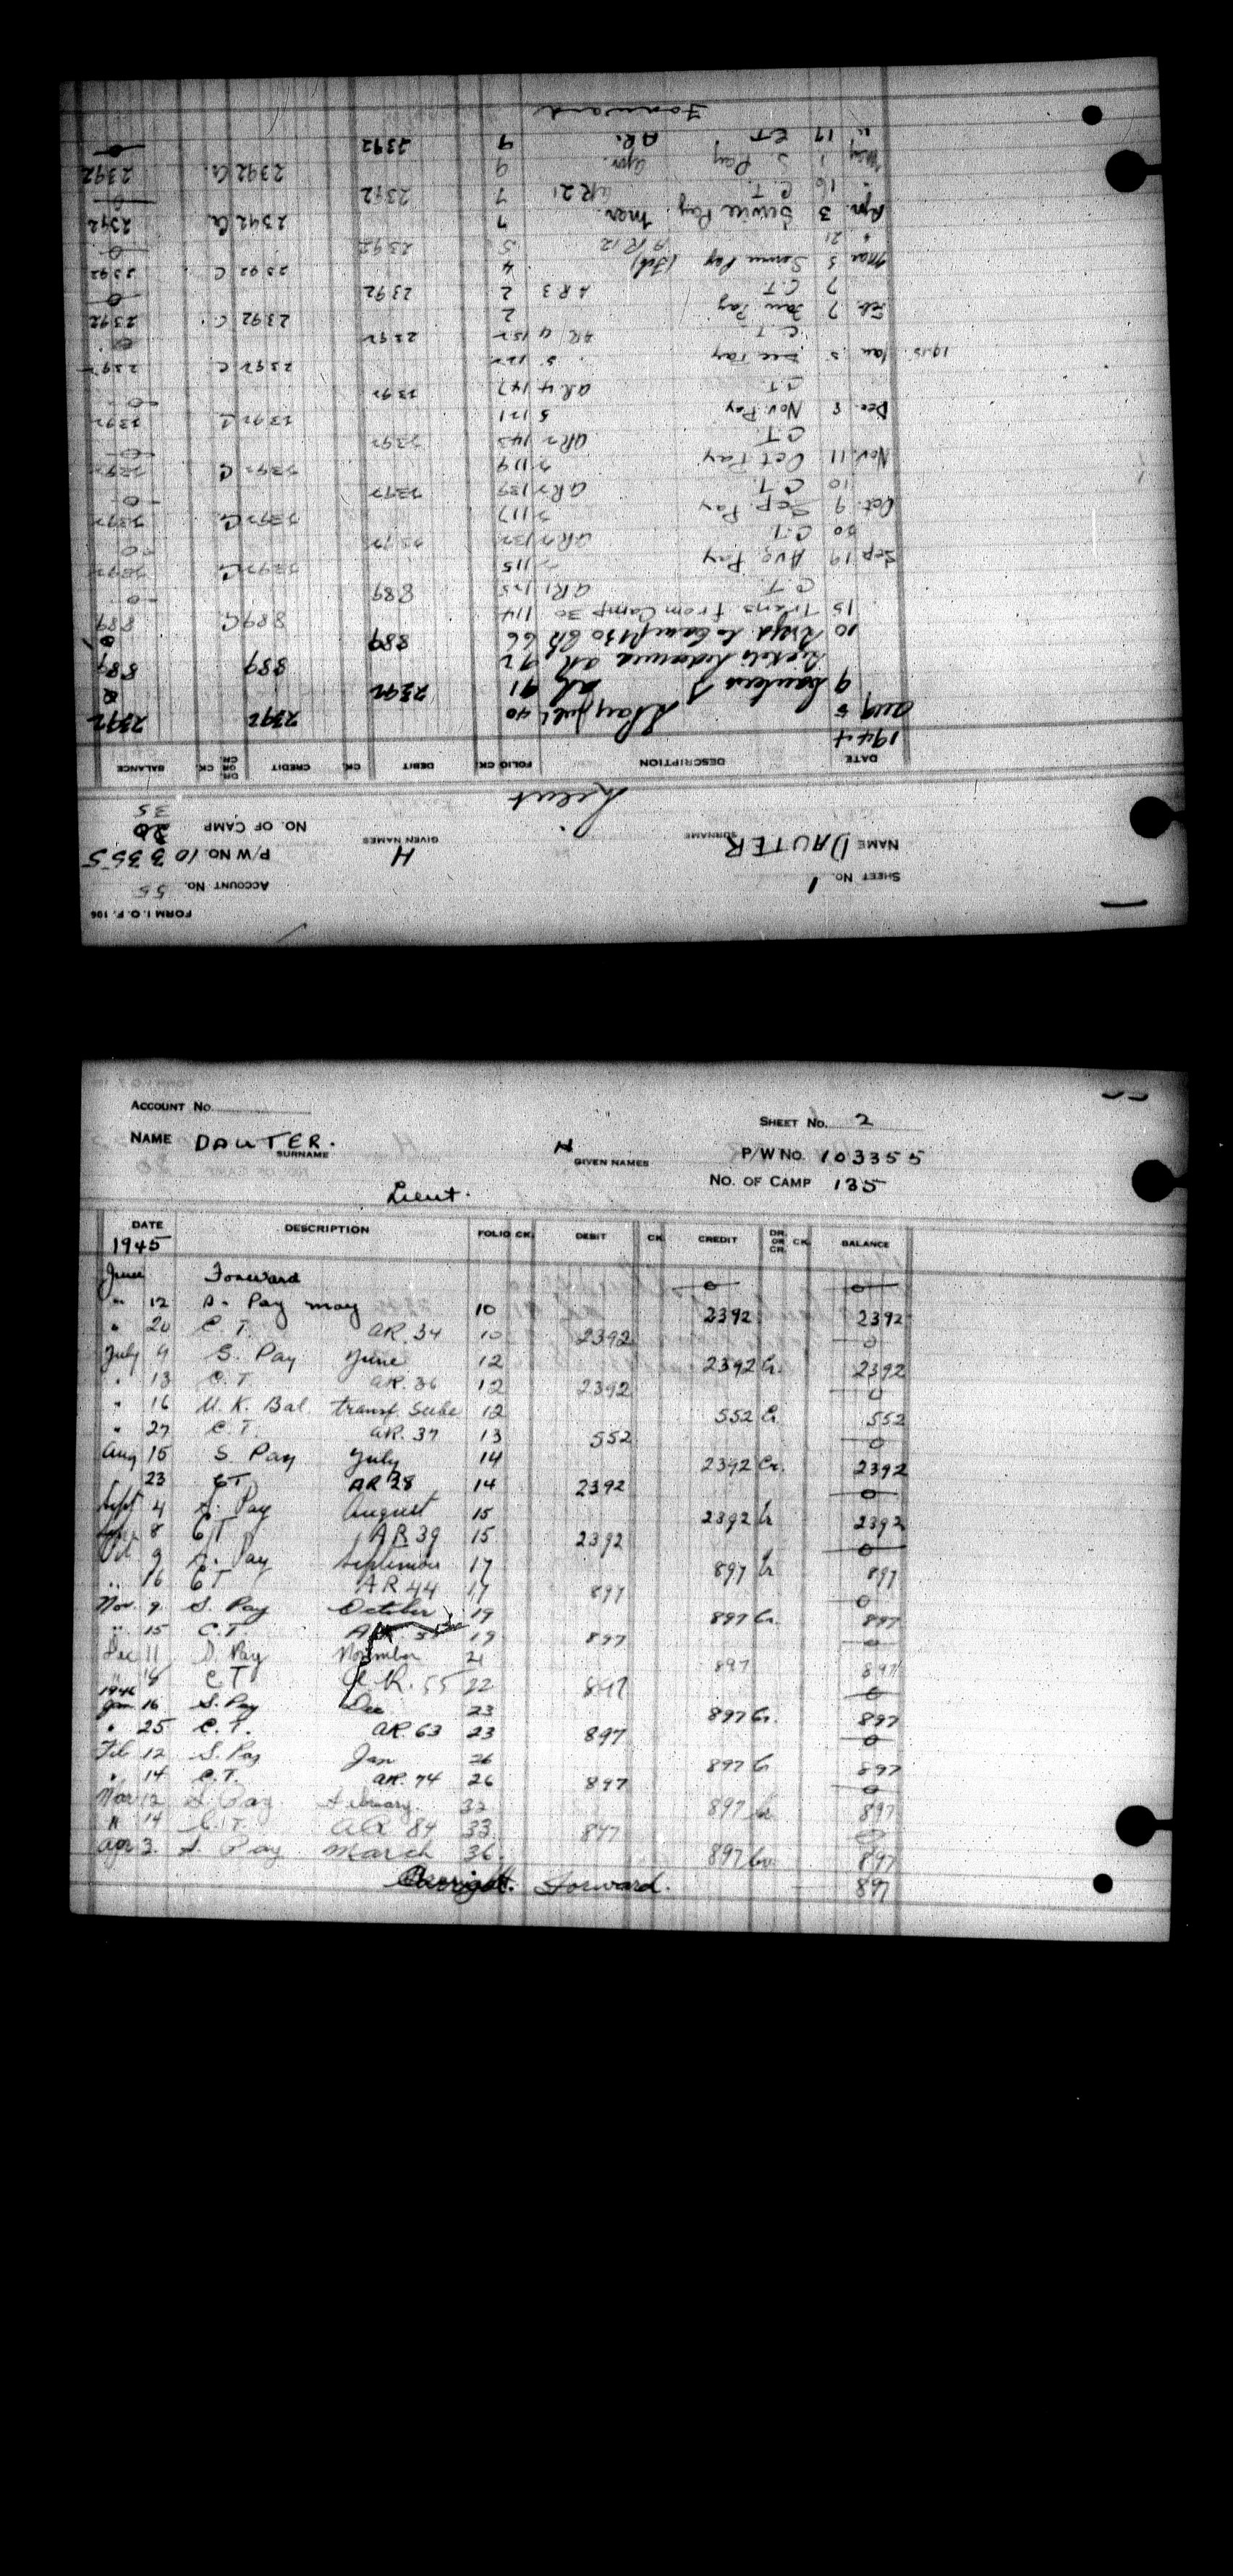 FORM I.O.F. 106
SHEET No. 1 ACCOUNT No. 55
NAME DAUTER H P/W No. 103355
SURNAME GIVEN NAMES NO. OF CAMP 30
Lieut 35
DATE DESCRIPTION FOLIO CK. DEBIT CK. CREDIT DR. OR CR. CK. BALANCE
1944
Aug 5 Pay July 40 2392 2392
9 91 2392 0
92 889 889
10 66 889 0
15 Trans from Camp 30 114 889 C 889
C.T. AR 1 125 889 0
Sep 19 Aug Pay 115 2392 C 2392
30 C.T. AR 2 132 2392 0
Oct. 9 Sep. Pay 2 117 2392 C 2392
10 C.T. AR 2 139 2392 0
Nov. 11 Oct Pay 2 119 2392 C 2392
C.T. AR 2 143 2392 0
Dec. 8 Nov. Pay 5 121 2392 C 2392
C.T. AR 4 147 2392 0
1945 Jan 5 Dec Pay 5 122 2392 C 2392
C.T. AR 4 152 2392 0
Feb 7 Jan Pay 2 2392 C. 2392
7 C.T. AR 3 2 2392 0
Mar 3 Service Pay (Feb) 4 2392 C 2392
" 21 A/R 12 5 2392 0
Apr. 3 Service Pay Mar. 7 2392 Cr 2392
" 16 C.T. AR 21 7 2392 0
May 1 S. Pay Apr. 9 2392 Cr. 2392
" 19 C.T. AR. 9 2392 0
Forward
ACCOUNT No. SHEET No. 2
NAME DAUTER. H P/W No. 103355
SURNAME GIVEN NAMES
Lieut. No. OF CAMP 135
DATE DESCRIPTION FOLIO CK. DEBIT CK. CREDIT DR. OR CR. CK. BALANCE
1945
June Forward 0 0
" 12 S. Pay may 10 2392 2392
" 20 C.T. AR. 34 10 2392 0
July 9 S. Pay June 12 2392 Cr. 2392
" 13 C.T. AR. 36 12 2392 0
" 16 U.K. Bal. transf. 12 552 Cr 552
" 27 C.T. AR. 37 13 552 0
Aug 15 S Pay July 14 2392 Cr. 2392
23 CT AR 38 14 2392 0
Sept 4 S. Pay August 15 2392 Cr 2392
8 CT AR 39 15 2392 0
Oct 9 S. Pay September 17 897 Cr 897
" 16 CT AR 44 17 897 0
Nov. 9 S. Pay October 19 897 Cr. 897
" 15 C.T 19 897 0
Dec 11 S. Pay November 21 897 897
C T A.R. 55 22 897 0
1946
Jan 16 S. Pay Dec 23 897 Cr. 897
" 25 C.T. AR. 63 23 897 0
Feb 12 S. Pay Jan 26 897 Cr 897
" 14 C.T. AR. 74 26 897 0
Mar 12 S. Pay. February. 32 897 Cr. 897
" 14 C.T. AR 84 33 897 0
Apr 3. S. Pay March 36. 897 Cr. 897
Forward. 897